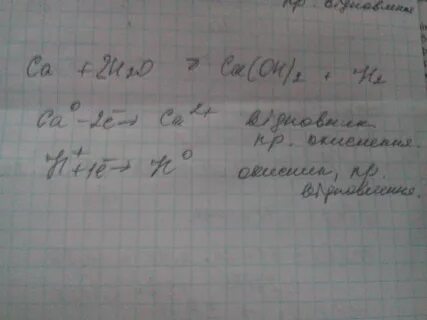 пр. відновлення
Ca + 2H2O → Ca(OH)2 + H2
Ca⁰ - 2e̅ → Ca²⁺ відновник
пр. окиснення.
H⁺ + 1e̅ → H⁰ окисник, пр.
відновлення.